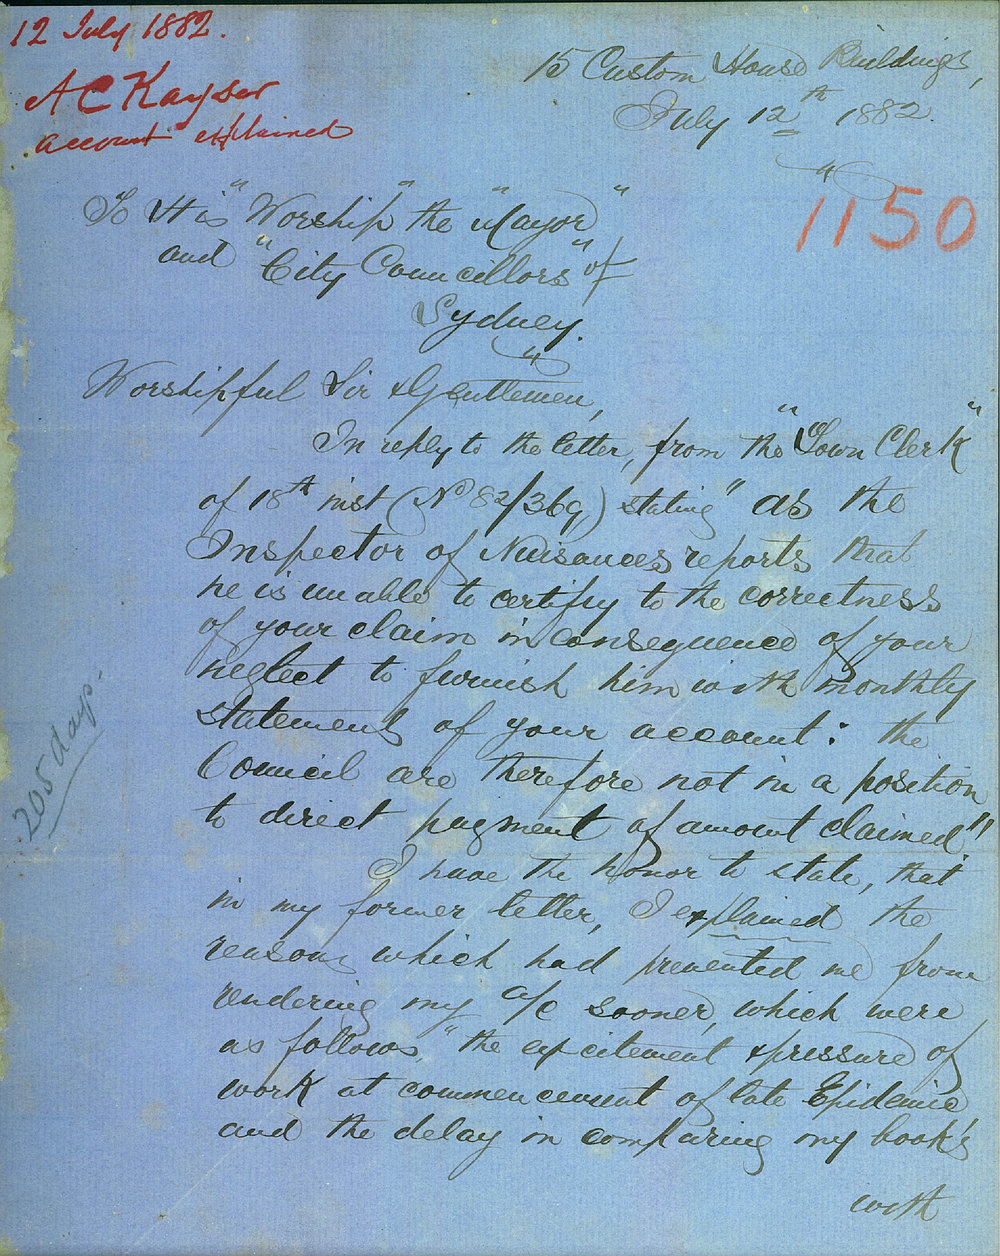 12 July 1882.
A C Kayser
account explained
15 Custom House Buildings,
July 12th 1882.
1150
To "His" Worship" the "Mayor"
and "City Councillors" of
Sydney.
Worshipful Sir & Gentlemen,
In reply to the letter, from the "Town Clerk"
of 18th inst (No 82/369,) stating "as the
Inspector of Nuisances reports that
he is unable to certify to the correctness
of your claim in consequence of your
neglect to furnish him with monthly
statements of your account: the
Council are therefore not in a position
to direct payment of amount claimed"
I have the honor to state, that
in my former letter, I explained the
reasons which had prevented me from
rendering my a/c sooner, which were
as follows "the excitement & pressure of
work at commencement of late Epidemic
and the delay in comparing my book's
with
205 days.